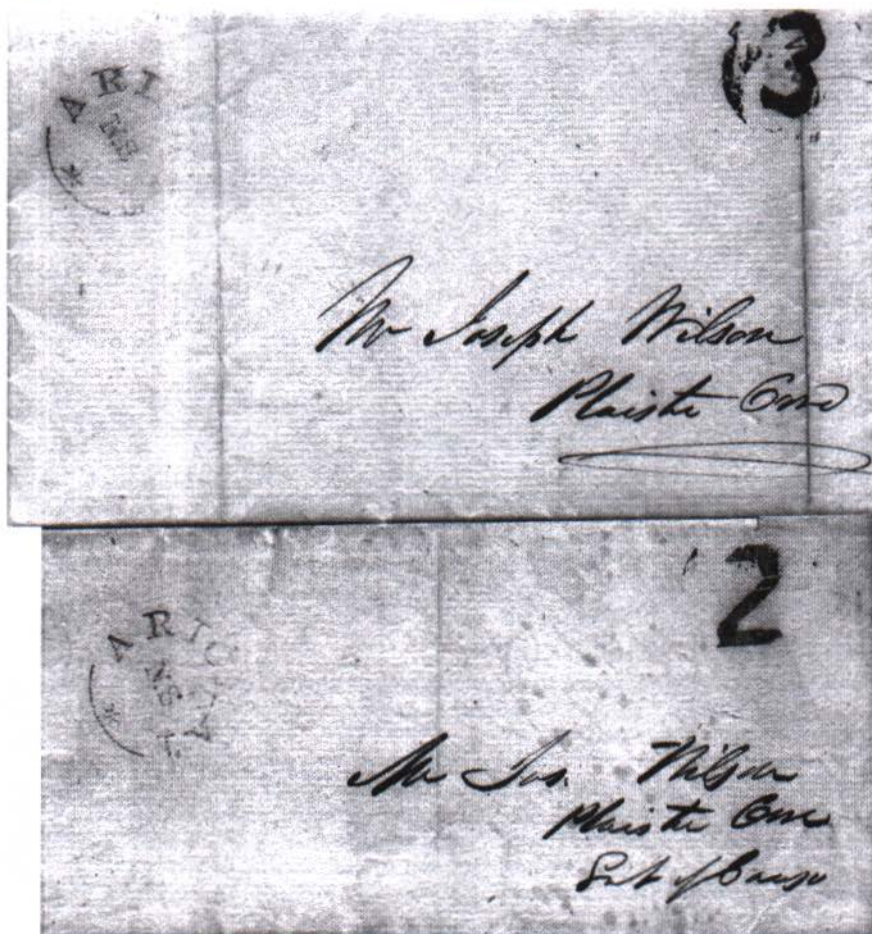 ARI
N.S
3
Mr Joseph Wilson
Plaister Cove
ARICHAT
N.S
2
Mr Jos. Wilson
Plaister Cove
Gut of Canso